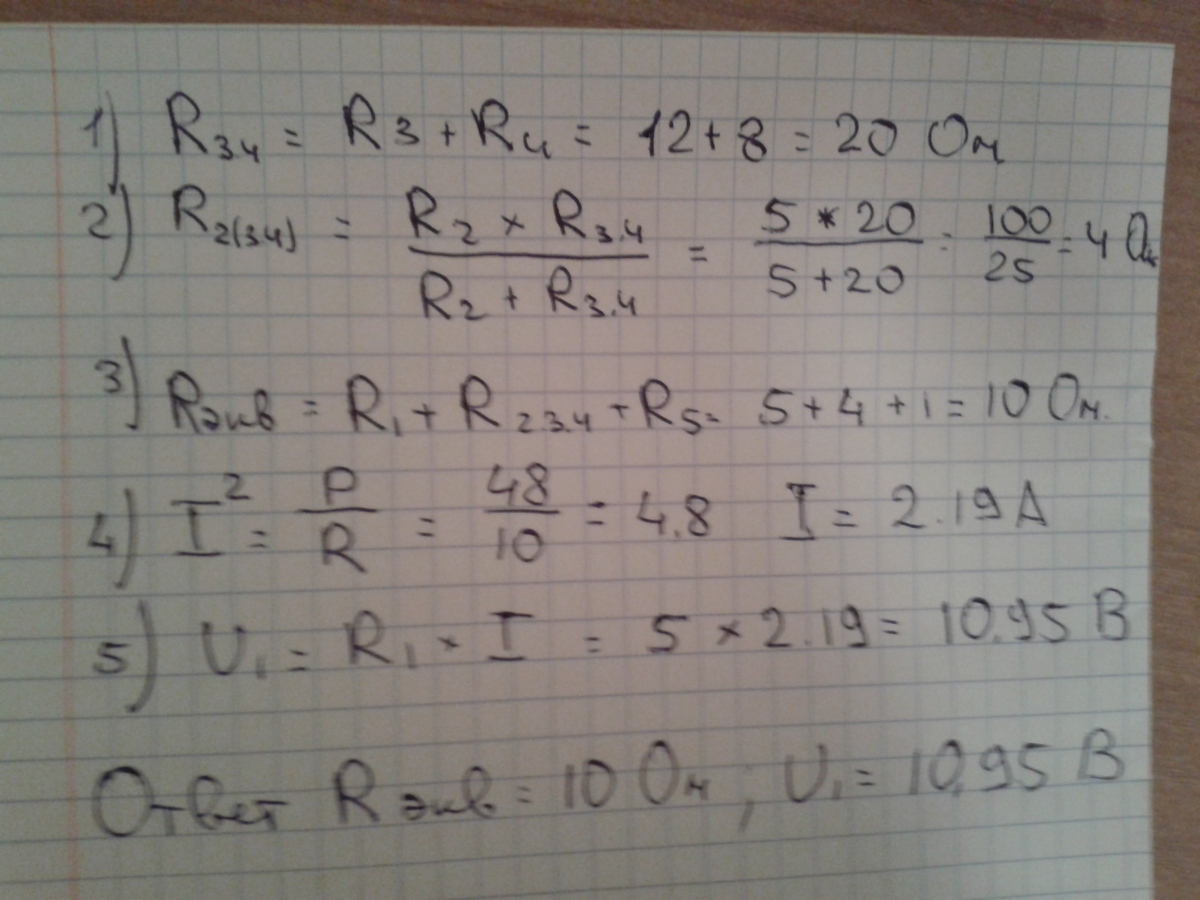 1) R3.4 = R3 + R4 = 12 + 8 = 20 Ом
2) R2(3.4) = R2 × R3.4 / R2 + R3.4 = 5 * 20 / 5 + 20 = 100 / 25 = 4 Ом
3) Rэкв = R1 + R2.3.4 + R5 = 5 + 4 + 1 = 10 Ом.
4) I² = P / R = 48 / 10 = 4.8 I = 2.19 А
5) U1 = R1 × I = 5 × 2.19 = 10.95 В
Ответ Rэкв = 10 Ом ; U1 = 10.95 В